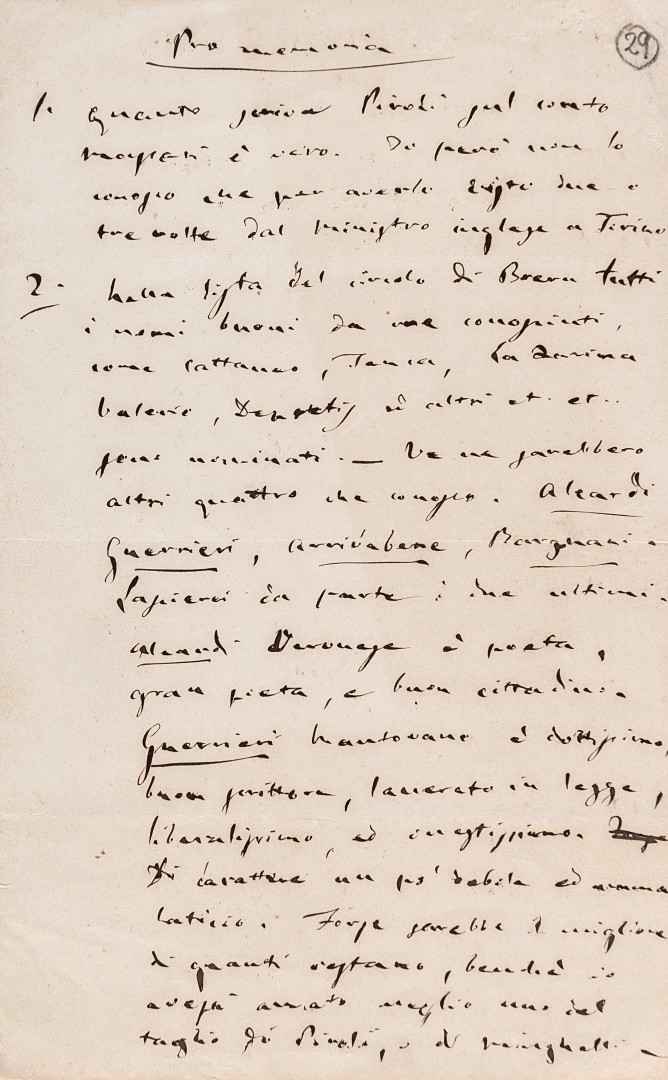 Pro memoria
29
1. Quanto scrive Piroli sul conto
Magliari è vero. Io però non lo
conosco che per averlo visto due o
tre volte dal ministro inglese a Torino
2. Nella lista del circolo di Brera tutti
i nomi buoni da me conosciuti,
come Cattaneo, Tenca, La Zarina
Valerio, Depretis ed altri et. et..
sono nominati. — Ve ne sarebbero
altri quattro che conosco. Aleardi
Guerrieri, Arrivabene, Bargnani.
Lascierei da parte i due ultimi.
Aleardi Veronese è poeta,
gran poeta, e buon cittadino.
Guerrieri Mantovano è dottissimo,
buon scrittore, laureato in legge,
liberalissimo, ed onestissimo.
Di carattere un po' debole ed amma
laticcio. Forse sarebbe il migliore
di quanti restano, benchè io
avessi amato meglio uno del
taglio di Piroli, o di Minghelli —